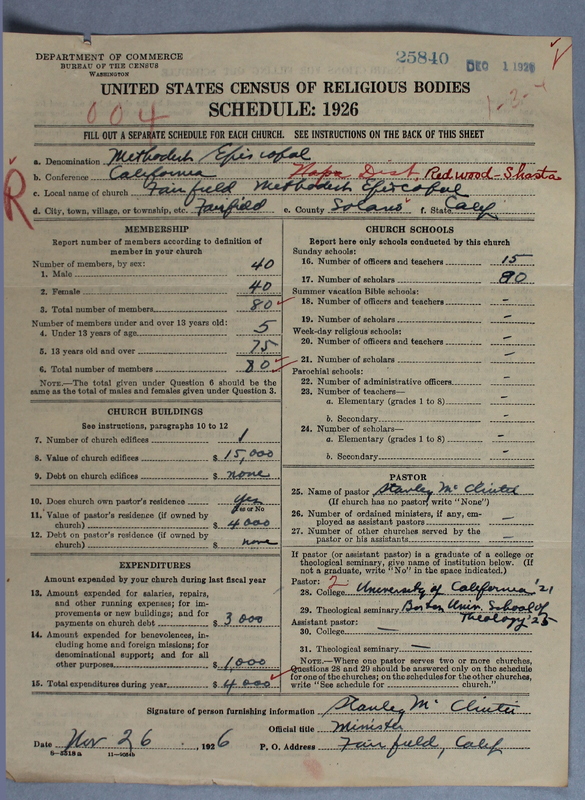 DEPARTMENT OF COMMERCE
BUREAU OF THE CENSUS
WASHINGTON
25840
DEC 1 192
UNITED STATES CENSUS OF RELIGIOUS BODIES
SCHEDULE: 1926
004
1-3-4
FILL OUT A SEPARATE SCHEDULE FOR EACH CHURCH. SEE INSTRUCTIONS ON THE BACK OF THIS SHEET
R
a. Denomination Methodist Episcopal
b. Conference California Napa Dist, Redwood-Shasta
c. Local name of church Fairfield Methodist Episcopal
d. City, town, village, or township, etc. Fairfield e. County Solano f. State Calif
MEMBERSHIP
Report number of members according to definition of
member in your church
Number of members, by sex:
1. Male 40
2. Female 40
3. Total number of members 80
Number of members under and over 13 years old:
4. Under 13 years of age 5
5. 13 years old and over 75
6. Total number of members 80
NOTE.—The total given under Question 6 should be the
same as the total of males and females given under Question 3.
CHURCH BUILDINGS
See instructions, paragraphs 10 to 12
7. Number of church edifices 1
8. Value of church edifices $ 15,000
9. Debt on church edifices $ none
10. Does church own pastor's residence yes
Yes or No
11. Value of pastor's residence (if owned by
church) $ 4000
12. Debt on pastor's residence (if owned by
church) $ none
EXPENDITURES
Amount expended by your church during last fiscal year
13. Amount expended for salaries, repairs,
and other running expenses; for im-
provements or new buildings; and for
payments on church debt $ 3000
14. Amount expended for benevolences, in-
cluding home and foreign missions; for
denominational support; and for all
other purposes $ 1000
15. Total expenditures during year $ 4000
CHURCH SCHOOLS
Report here only schools conducted by this church
Sunday schools:
16. Number of officers and teachers 15
17. Number of scholars 80
Summer vacation Bible schools:
18. Number of officers and teachers –
19. Number of scholars –
Week-day religious schools:
20. Number of officers and teachers –
21. Number of scholars –
Parochial schools:
22. Number of administrative officers –
23. Number of teachers—
a. Elementary (grades 1 to 8) –
b. Secondary –
24. Number of scholars—
a. Elementary (grades 1 to 8) –
b. Secondary –
PASTOR
25. Name of pastor Stanley
(If church has no pastor, write "None")
26. Number of ordained ministers, if any, em-
ployed as assistant pastors –
27. Number of other churches served by the
pastor or his assistants –
If pastor (or assistant pastor) is a graduate of a college or
theological seminary, give name of institution below. (If
not a graduate, write "No" in the space indicated.)
Pastor: 2
28. College University of California '21
29. Theological seminary Boston Univ. School of
Theology '25
Assistant pastor:
30. College —
31. Theological seminary —
NOTE.—Where one pastor serves two or more churches,
Questions 28 and 29 should be answered only on the schedule
for one of the churches; on the schedules for the other churches,
write "See schedule for ______ church."
Signature of person furnishing information Stanley
Official title Minister
Date Nov 26, 1926 P. O. Address Fairfield, Calif
8—5318a 11—9054b